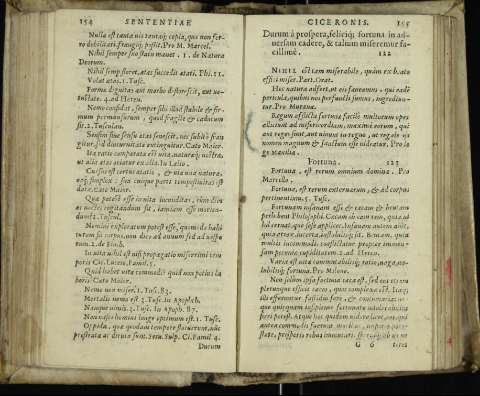 154 SENTENTIAE
Nulla est tanta vis tantaq; copia, quæ non fer-
ro debilitari, frangiq; possit. Pro M. Marcel.
Nihil semper suo statu manet. 1. de Natura
Deorum.
Nihil semp floret, ætas succedit ætati. Phi. 11.
Volat ætas. 1. Tusc.
Formæ dignitas aut morbo
tustate. 4. ad Heren.
Nemo confidit, semper sibi illud stabile & fir-
mum permansurum, quod fragile & caducum
sit. 2. Tusculan.
Sensim sine sensu ætas senescit, nec subitò fran
gitur, sed diuturnitate extinguitur. Cato Maior.
Ita ratio comparata est vitæ, naturæq; nostræ,
ut alia ætas oriatur ex alia. In Lælio.
Cursus est certus ætatis, & una via naturæ,
eaq; simplex: sua cuique parti tempestiuitas est
data. Cato Maior.
Quæ potest esse in vita iucunditas, cum dies
ac noctes cogitandum sit, iamiam esse morien-
dum? 1. Tuscul.
Nemini exploratum potest esse, quomodo habi
turum sit corpus, non dico ad annum sed ad vespe
rum. 2. de finib.
In vita nihil est nisi propagatio miserrimi tem
poris Cic. Lucceio, Famil. 5.
Quid habet vita commodi? quid non potius la
boris? Cato Maior.
Nemo non miser. 1. Tusc. 83.
Mortalis nemo est 3. Tusc. In Apoph.
Nanque nimis. 3. Tusc. In Apoph. 87.
Non nasci homini longe optimum est. 1. Tusc.
Oppida, quæ quodam tempore
prostrata ac diruta sunt. Seru. Sulp. Ci. Famil. 4.
Durum
CICERONIS. 155
Durum à prospera, feliciq; fortuna in ad-
uersam cadere, & talium miseremur fa-
cillimè. 122
NIHIL est tam miserabile, quàm ex beato
effici miser. Part. Orat.
Hoc natura adfert, ut eis faueamus, qui eadẽ
pericula, quibus nos perfuncti sumus, ingrediun-
tur. Pro Murena.
Regum afflictæ fortunæ facilè multorum opes
alliciunt ad misericordiam, maximè eorum, qui
aut reges sunt, aut uiuunt in regno, ut regale eis
nomen magnum & sanctum esse uideatur. Pro le
ge Manilia.
Fortuna. 123
Fortuna, est rerum omnium domina. Pro
Marcello.
Fortuna, est rerum externarum, & ad corpus
pertinentium. 5. Tusc.
Fortunam insanam esse & cæcam & brutam
perhibent Philosophi. Cæcam ob eam rem, quia ni
hil cernat, quo sese applicet. Insanam autem aiunt,
quia atrox, incerta, instabilisq; sit. Brutam, quia
2. ad Heren.
Varia est uitæ commutabilisq; ratio, uaga, uo-
lubilisq; fortuna. Pro Milone.
Non solùm ipsa fortuna cæca est, sed eos etiam
plerunque efficit cæcos, quos complexa est. Itaq;
illi efferuntur fastidio ferè, & contumacia: ne-
que quicquam insipiente fortunato intolerabilius
fieri potest. Atque hoc quidem uidere licet, eos qui
antea commodis fuerunt moribus, imperio, pote-
state, prosperis rebus immutari,
G 6